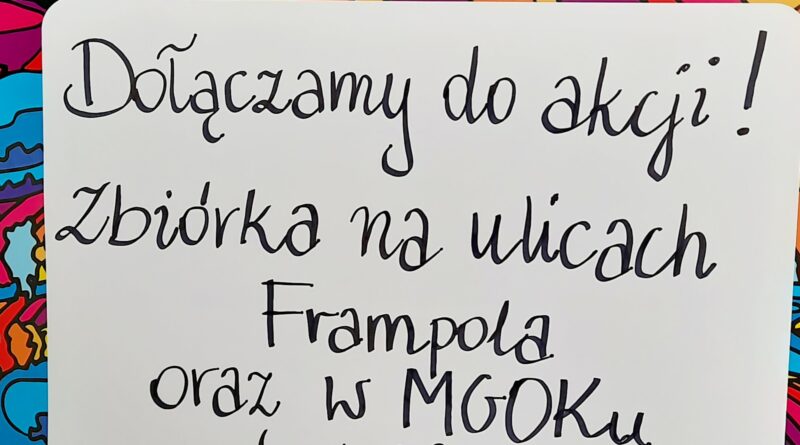 Dołączamy do akcji!
Zbiórka na ulicach
Frampola
oraz w MGOKu